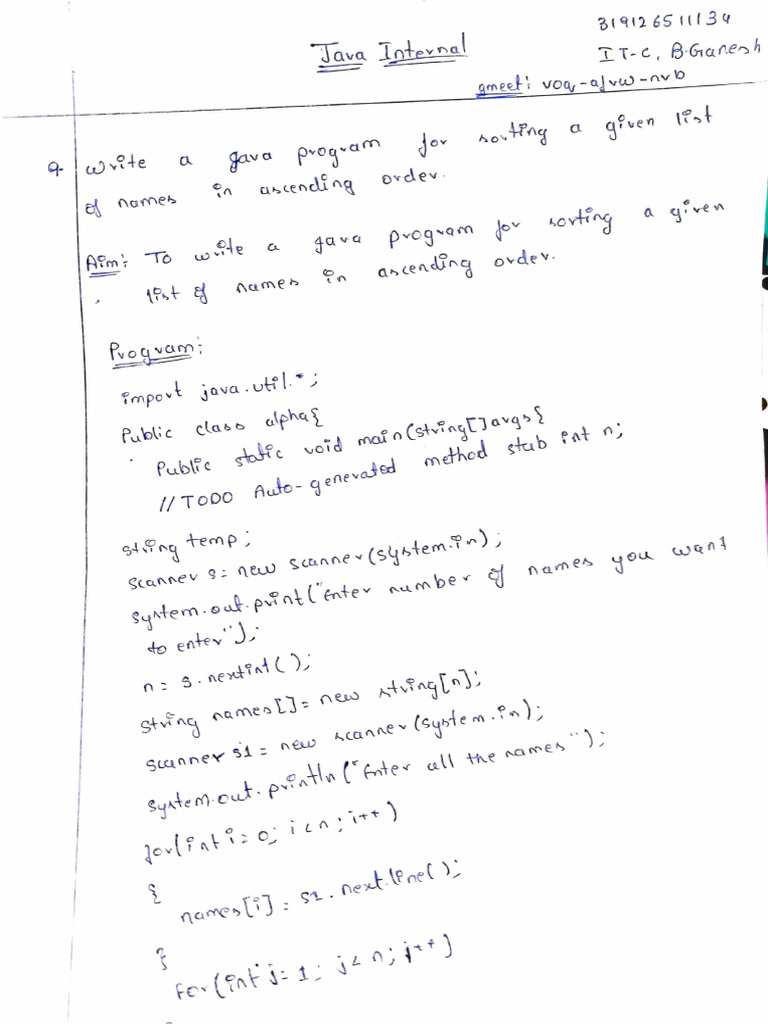 319126511134
Java Internal
IT-C, B.Ganesh
gmeet: voq-afvw-nvb
Q Write a java program for sorting a given list
of names in ascending order.
Aim: To write a java program for sorting a given
list of names in ascending order.
Program:
import java.util.*;
Public class alpha{
Public static void main(String[]args{
//TODO Auto-generated method stub int n;
string temp;
scanner s= new scanner(system.in);
system.out.print("Enter number of names you want
to enter");
n= s.nextint();
string names[]= new string[n];
scanner s1= new scanner(system.in);
system.out.println("Enter all the names");
for(int i=0; i<n; i++)
{
names[i]= s1.next.line();
}
For(int j=1; j<n; j++)